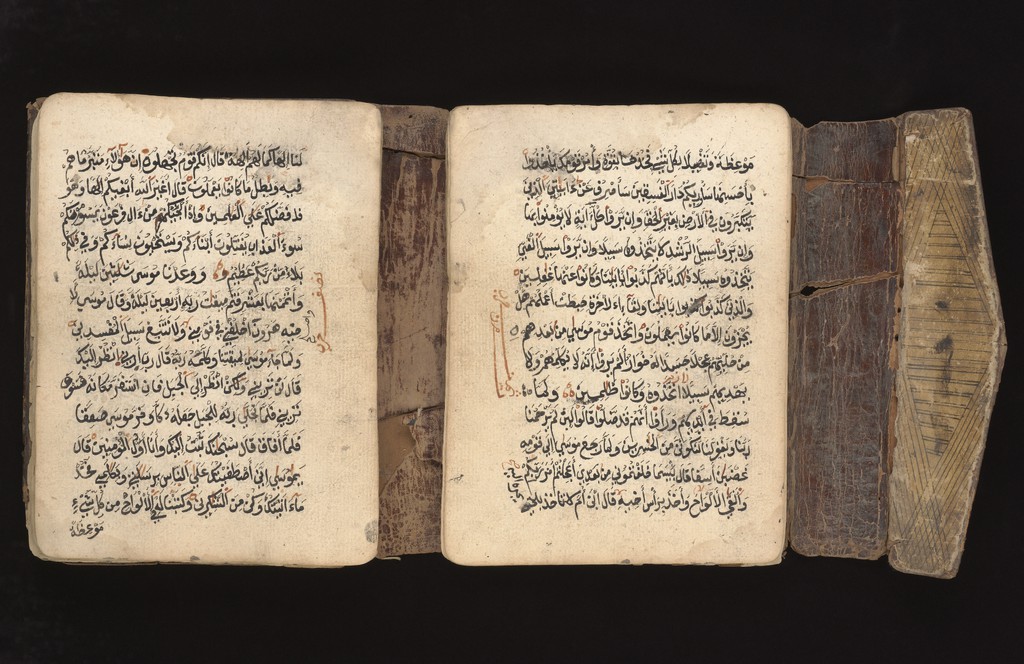 لنا الها كما لهم الهة قال انكم قوم تجهلون ان هؤلاء متبر ما هم
فيه وبطل ما كانوا يعملون قال اغير الله ابغيكم الها وهو
فضلكم على العلمين واذ انجينكم من ءال فرعون يسومونكم
سوء العذاب يقتلون ابناءكم ويستحيون نساءكم وفي ذلكم
بلاء من ربكم عظيم ووعدنا موسى ثلثين ليلة
واتممنها بعشر فتم ميقت ربه اربعين ليلة وقال موسى لا
خيه هرون اخلفني في قومي ولا تتبع سبيل المفسدين
واصلح
نصف حزب
ولما جاء موسى لميقتنا وكلمه ربه قال رب ارني انظر اليك
قال لن تريني ولكن انظر الى الجبل فان استقر مكانه فسوف
تريني فلما تجلى ربه للجبل جعله دكا وخر موسى صعقا
فلما افاق قال سبحنك تبت اليك وانا اول المومنين قال
يموسى اني اصطفيتك على الناس برسلتي وبكلمي فخذ
ما ءاتيتك وكن من الشكرين وكتبنا له في الالواح من كل شيء
موعظة
موعظة وتفصيلا لكل شيء فخذها بقوة وامر قومك ياخذوا
باحسنها ساوريكم دار الفسقين ساصرف عن ءايتي الذين
يتكبرون في الارض بغير الحق وان يروا كل ءاية لا يومنوا بها
وان يروا سبيل الرشد لا يتخذوه سبيلا وان يروا سبيل الغي
يتخذوه سبيلا ذلك بانهم كذبوا بايتنا وكانوا عنها غفلين
والذين كذبوا بايتنا ولقاء الاخرة حبطت اعملهم هل
يجزون الا ما كانوا يعملون واتخذ قوم موسى من بعده
من حليهم عجلا جسدا له خوار الم يروا انه لا يكلمهم ولا
يهديهم سبيلا اتخذوه وكانوا ظلمين ولما
سقط في ايديهم وراوا انهم قد ضلوا قالوا لين لم يرحمنا
ربنا ويغفر لنا لنكونن من الخسرين ولما رجع موسى الى قومه
غضبن اسفا قال بيسما خلفتموني من بعدي اعجلتم امر ربكم
والقى الالواح واخذ براس اخيه قال ابن ام